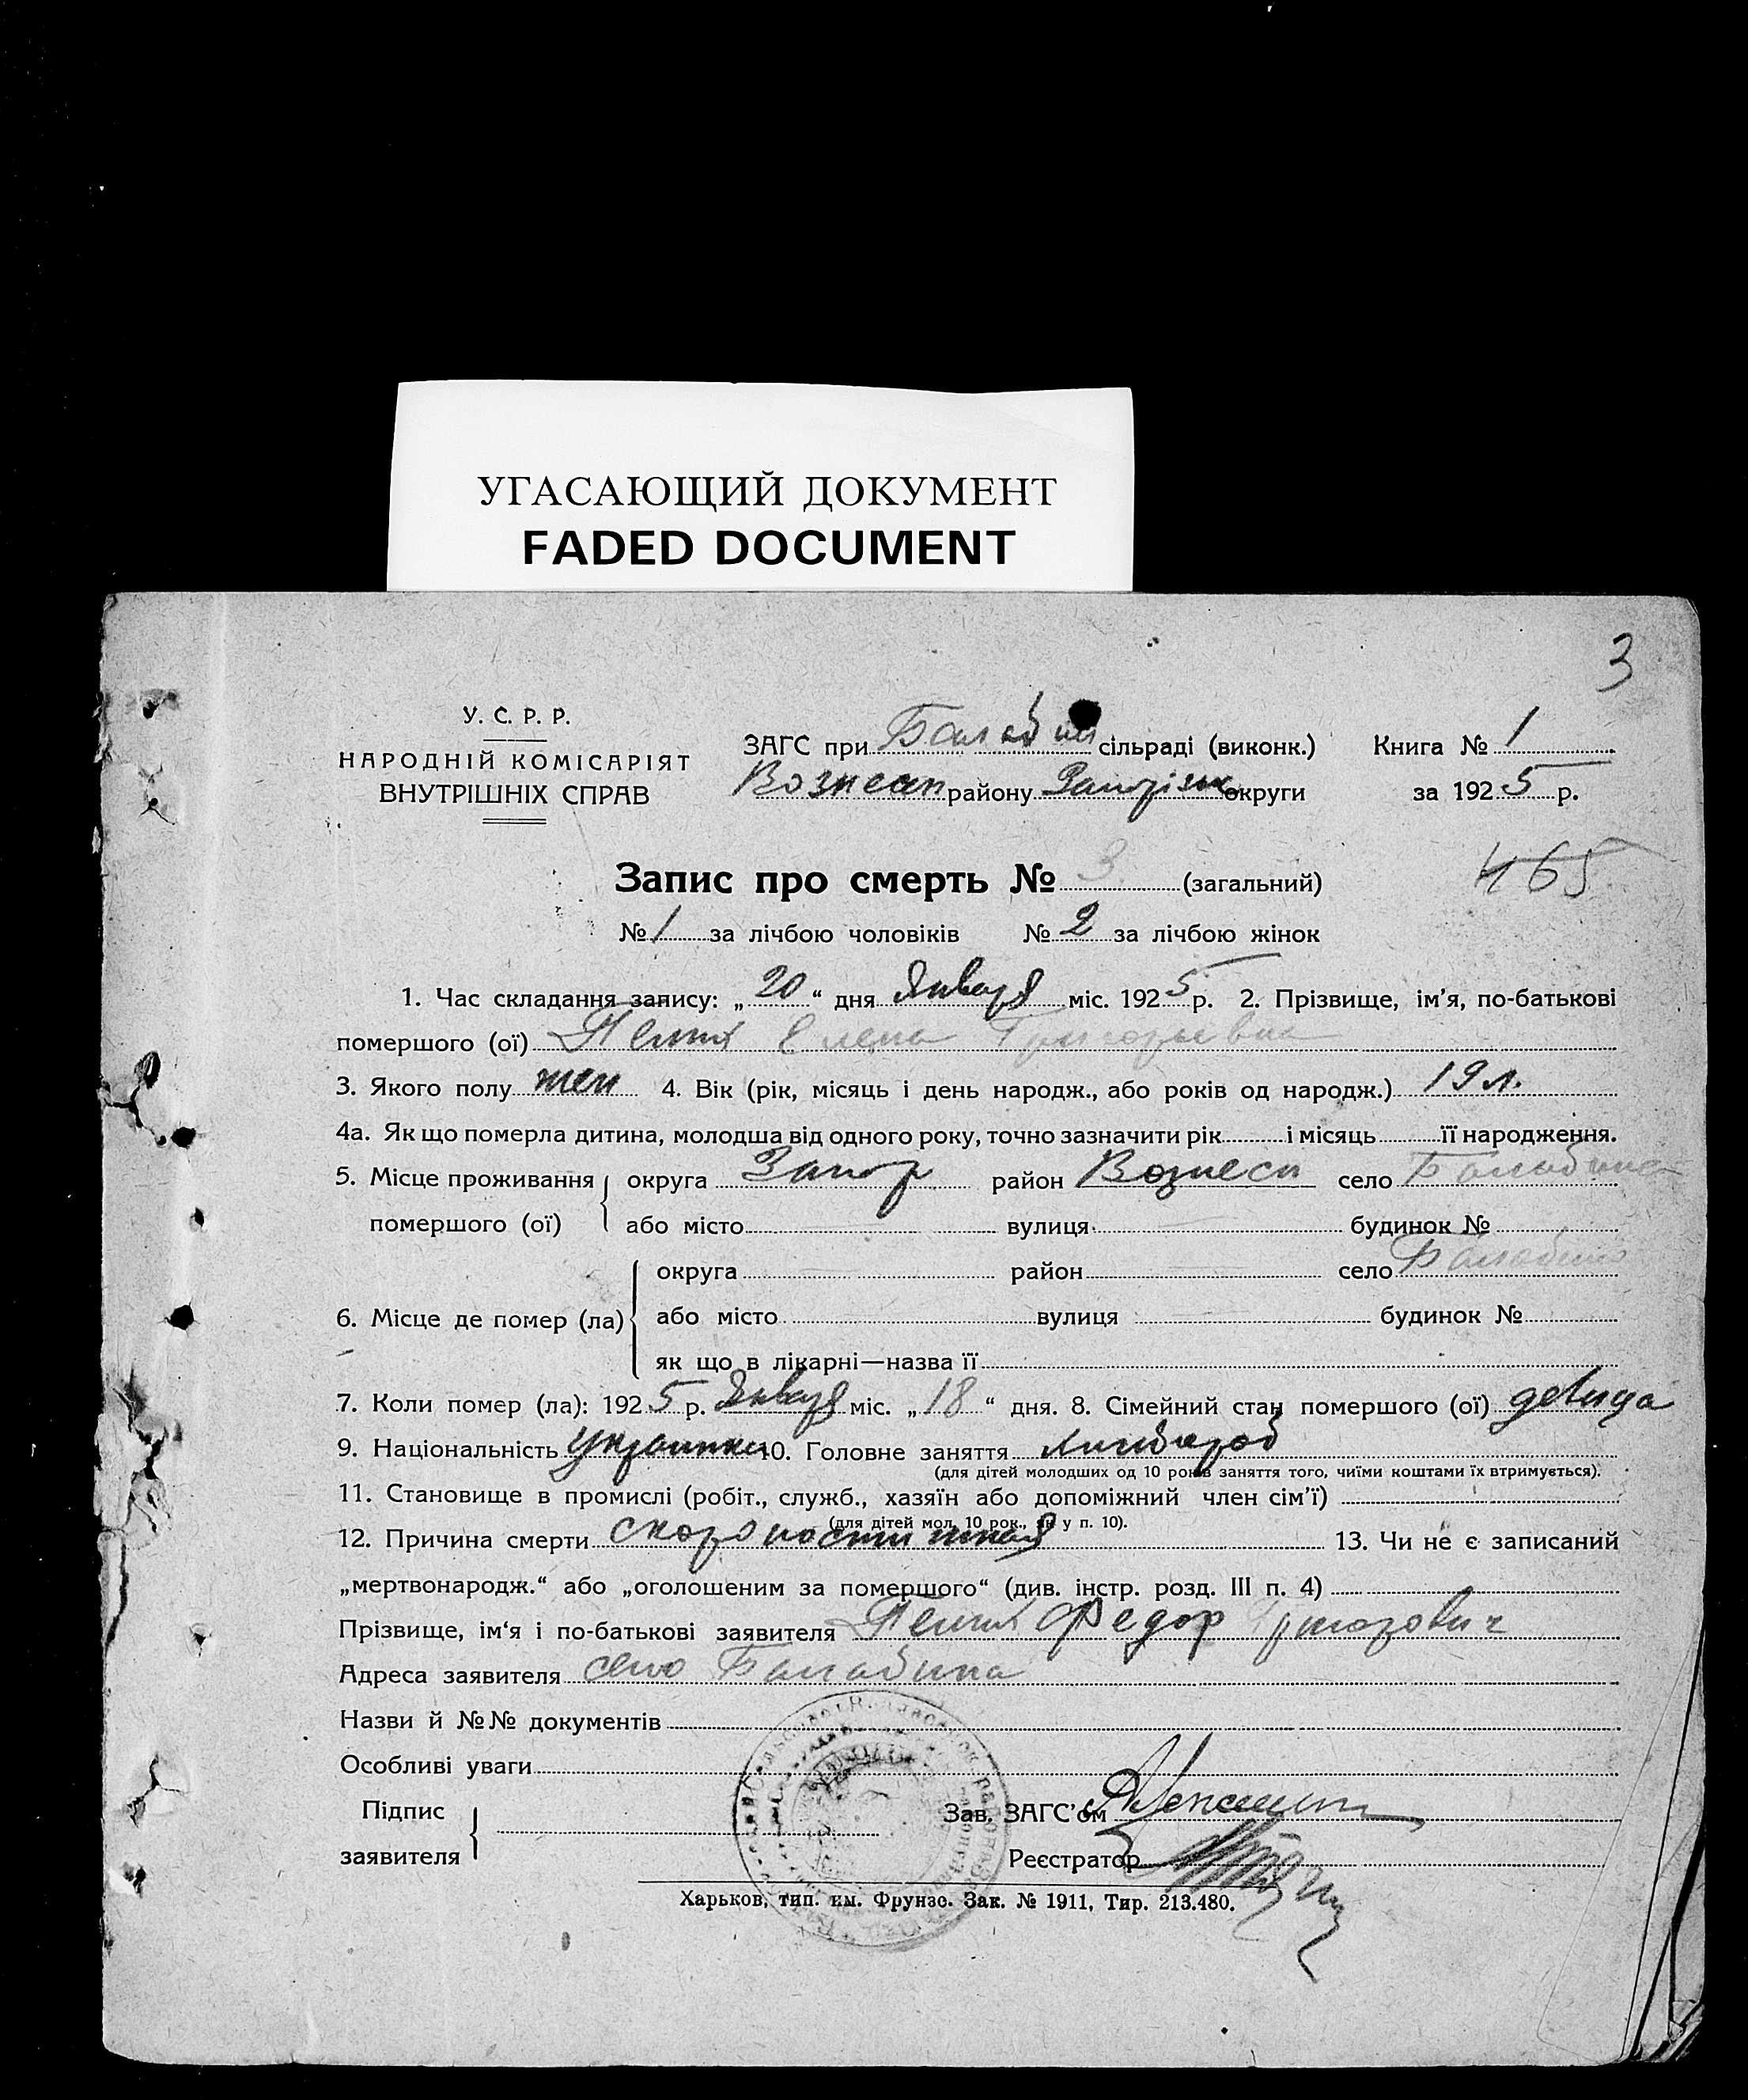 УГАСАЮЩИЙ ДОКУМЕНТ
FADED DOCUMENT
3
У. С. Р. Р.
НАРОДНІЙ КОМІСАРІЯТ
ВНУТРІШНІХ СПРАВ
ЗАГС при Балабин сільраді (виконк.) Книга № 1
Вознесен району Запорізьк округи за 1925 р.
Запис про смерть № 3 (загальний)
465
№ 1 за лічбою чоловіків № 2 за лічбою жінок
1. Час складання запису: „20“ дня Января міс. 1925 р. 2. Прізвище, ім’я, по-батькові
помершого (ої) Елена Григорьевна
3. Якого полу жен 4. Вік (рік, місяць і день народж., або років од народж.) 19 л.
4а. Як що померла дитина, молодша від одного року, точно зазначити рік і місяць її народження.
5. Місце проживання округа Запор район Вознесен село Балабина
помершого (ої) або місто вулиця будинок №
округа район село Балабино
6. Місце де помер (ла) або місто вулиця будинок №
як що в лікарні—назва її
7. Коли помер (ла): 1925 р. Января міс. „18“ дня. 8. Сімейний стан помершого (ої) девица
9. Національність Украинка 10. Головне заняття хлибороб
(для дітей молодших од 10 років заняття того, чиїми коштами їх втримується).
11. Становище в промислі (робіт., служб., хазяїн або допоміжний член сім’ї)
(для дітей мол. 10 рок., як у п. 10).
12. Причина смерти скоропостижная 13. Чи не є записаний
„мертвонародж.“ або „оголошеним за помершого“ (див. інстр. розд. III п. 4)
Прізвище, ім‘я і по-батькові заявителя Федор Григорович
Адреса заявителя село Балабина
Назви й №№ документів
Особливі уваги
Підпис
заявителя
Зав. ЗАГС’ом
Реєстратор
Харьков, тип. им. Фрунзе. Зак. № 1911, Тир. 213.480.